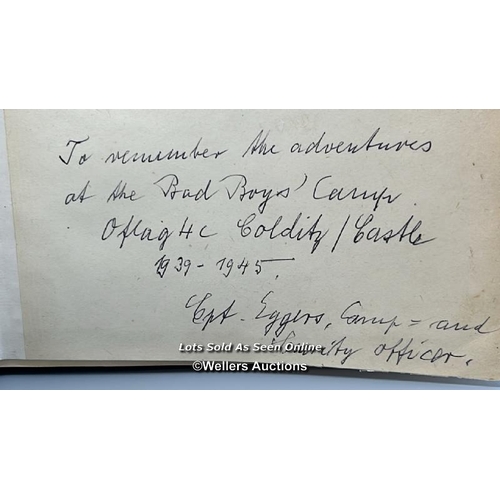 To remember the adventures
at the Bad Boys' Camp.
Oflag 4c Colditz / Castle
1939-1945.
Cpt. Eggers, Camp= and
Security officer.
Lots Sold As Seen Online
©Wellers Auctions